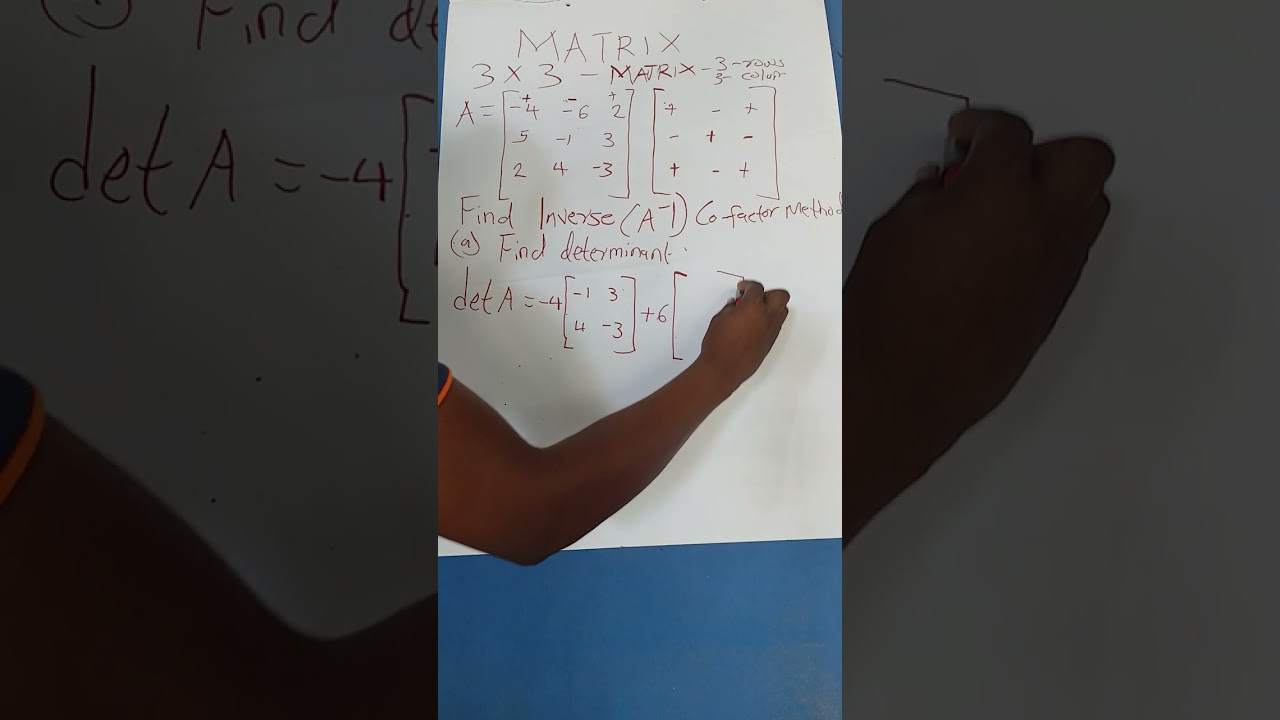 MATRIX
3 X 3 - MATRIX - 3 - rows
3 - colum
+ - +
A = [ -4 -6 2 ] [ + - + ]
[ 5 -1 3 ] [ - + - ]
[ 2 4 -3 ] [ + - + ]
Find Inverse (A-1) Cofactor Method
(a) Find determinant.
det A = -4 [ -1 3 ] + 6 [
[ 4 -3 ]
Find de
det A = -4 [